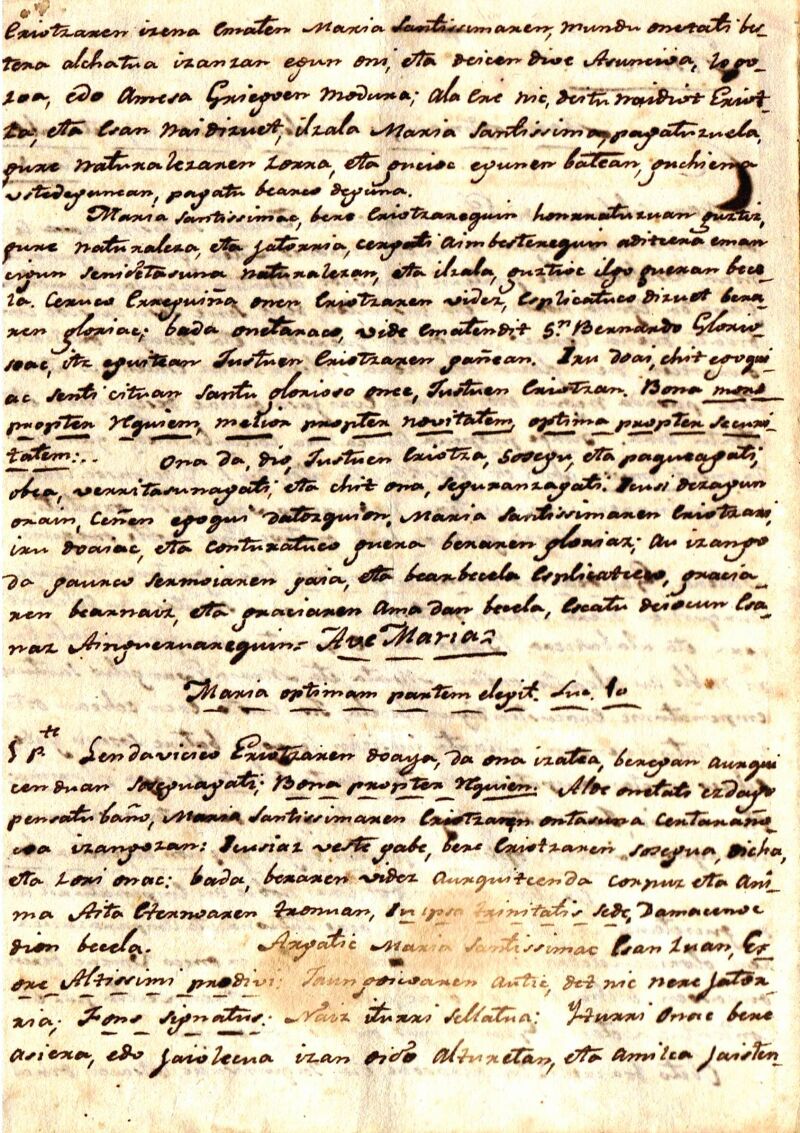 Eriotzaren izena ematen Maria Santissimaren, mundu onetati bes-
tera alchatua izanzan egun oni, eta deicen dive Asuncioa, logo-
zoa, edo amesa Griegoen modura; ala ere nic, deitu nai diot Eriot-
za, eta esan nai dizuet, ilzala Maria Santissima, pagatu zuela,
gure naturalezaren zorra, eta gucioc egunen batean, guchiena
ustedeguncan, pagatu bearco deguna.
Maria Santissimac, bere Eriotzarequin honrratu zuan guztiz,
gure naturaleza, eta jatorria, cergati aimbesterequin aditcera eman
cigun senidetasuna naturalezan, eta ilzala, guztioc ilgo gueran bece-
la. Ceruco Erreguiña onen Eriotzaren videz, esplicatuco dizuet bera-
ren gloriac; bada onetaraco, vide ematendit S.n Bernardo Glorio-
soac, itz eguitean Justuen Eriotzaren gañean. Iru doai, chit egoqui-
ac senti cituan Santu glorioso onec, Justuen Eriotzan. Bona mors
propter requiem, melior propter novitatem, optima propter securi-
tatem:.. Ona da, dio, Justuen Eriotza, sosegu, eta paqueagati,
obea, verritasunagati, eta chit ona, seguranzagati. Icusi dezagun
orain, ceñen egoqui datozquion, Maria Santissimaren Eriotzari,
iru doaiac, eta conturatuco guera beraren gloriaz; au izango
da gaurco sermoiaren gaia, eta bear becela esplicatceco, gracia-
ren bearnaiz, eta graciaren Ama dan becela, escatu deiocun esa-
naz Ainguervarequin= Ave Maria=
Maria optimam partem elegit. Luc. 10
§ 1.º Lendavicico Eriotzaren doaya, da ona izatea, beregan aurqui-
cen duan soseguagati; Bona propter requien. Alde onetati ezdago
pensatu baño, Maria Santissimaren Eriotzaren ontasuna ceñtaraño-
coa izangozan: Icusiaz veste gabe, bere Eriotzaren sosegua, dicha,
eta zori onac: bada, beraren videz aurquitcenda corpuz eta ani-
ma Aita Eternoaren tronuan, In ipsa trinitatis sede, Damacenoc
dion becela. Argatic Maria Santissimac esan zuan, Ex
ore Altissimi prodivi; Jaungoicoaren autic, det nic nere jator-
ria; Fons signatus: Naiz iturri sellatua: Yturri onac bere
asiera, edo jaiolecua izan oido alturetan, eta amilca jaisten-